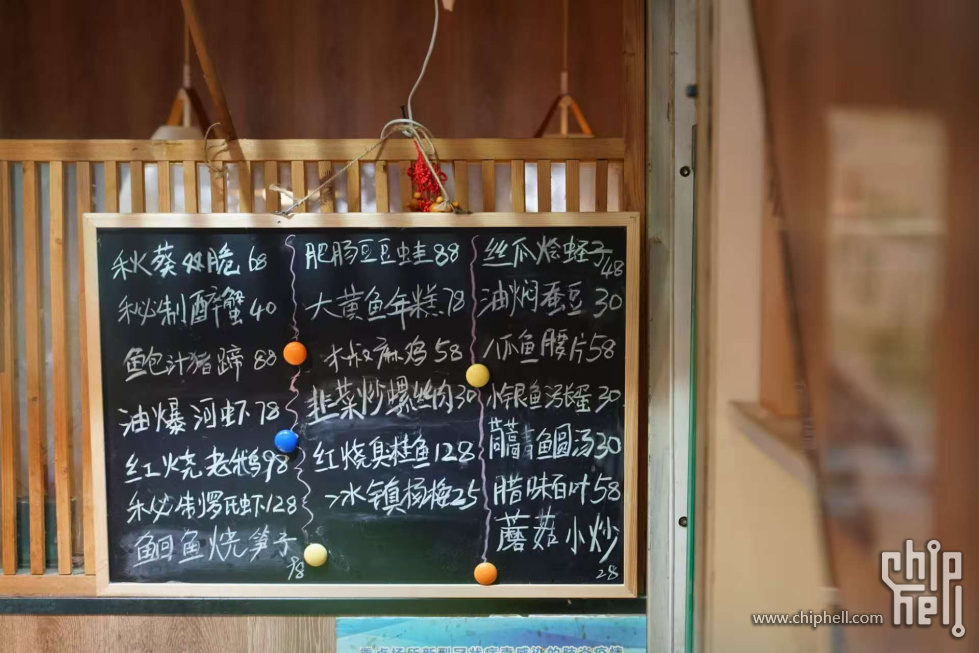 秋葵双脆 68
秘制醉蟹 40
鲍汁猪蹄 88
油爆河虾 78
红烧老鹅 98
秘制罗氏虾 128
鮰鱼烧笋子
98
肥肠豆豆蛙 88
大黄鱼年糕 78
麻鸡 58
韭菜炒螺丝肉 30
红烧臭桂鱼 128
冰镇杨梅 25
丝瓜烩蛏子 48
油焖蚕豆 30
鱼腰片 58
银鱼涨蛋 30
鱼圆汤 30
腊味百叶 58
蘑菇小炒
28
chip
hell
www.chiphell.com